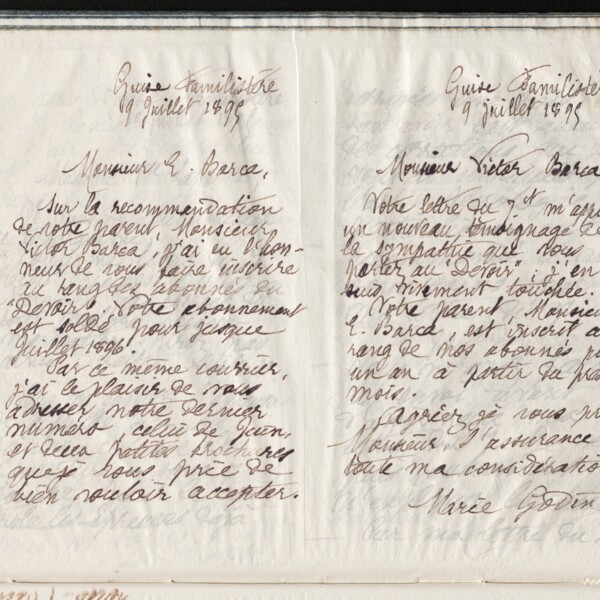 Guise Familistère
9 Juillet 1895
Monsieur E. Barca,
Sur la recommandation
de notre parent, Monsieur
Victor Barca, j'ai eu l'hon-
neur de vous faire inscrire
au rang des abonnés du
"Devoir". Votre abonnement
est soldé pour jusque
Juillet 1896.
Par ce même courrier,
j'ai le plaisir de vous
adresser notre dernier
numéro, celui de Juin,
et deux petites brochures
que je vous prie de
bien vouloir accepter.
Guise Familistère
9 juillet 1895
Monsieur Victor Barca
Votre lettre du 7 ct m'app
un nouveau témoignage de
la sympathie que vous
portez au "Devoir", j'en
suis vivement touchée.
Votre parent, Monsieu
E. Barca, est inscrit a
rang de nos abonnés po
un an à partir du pr
mois.
Agréez je vous pr
Monsieur l'assurance
toute ma considératio
Marie Godin